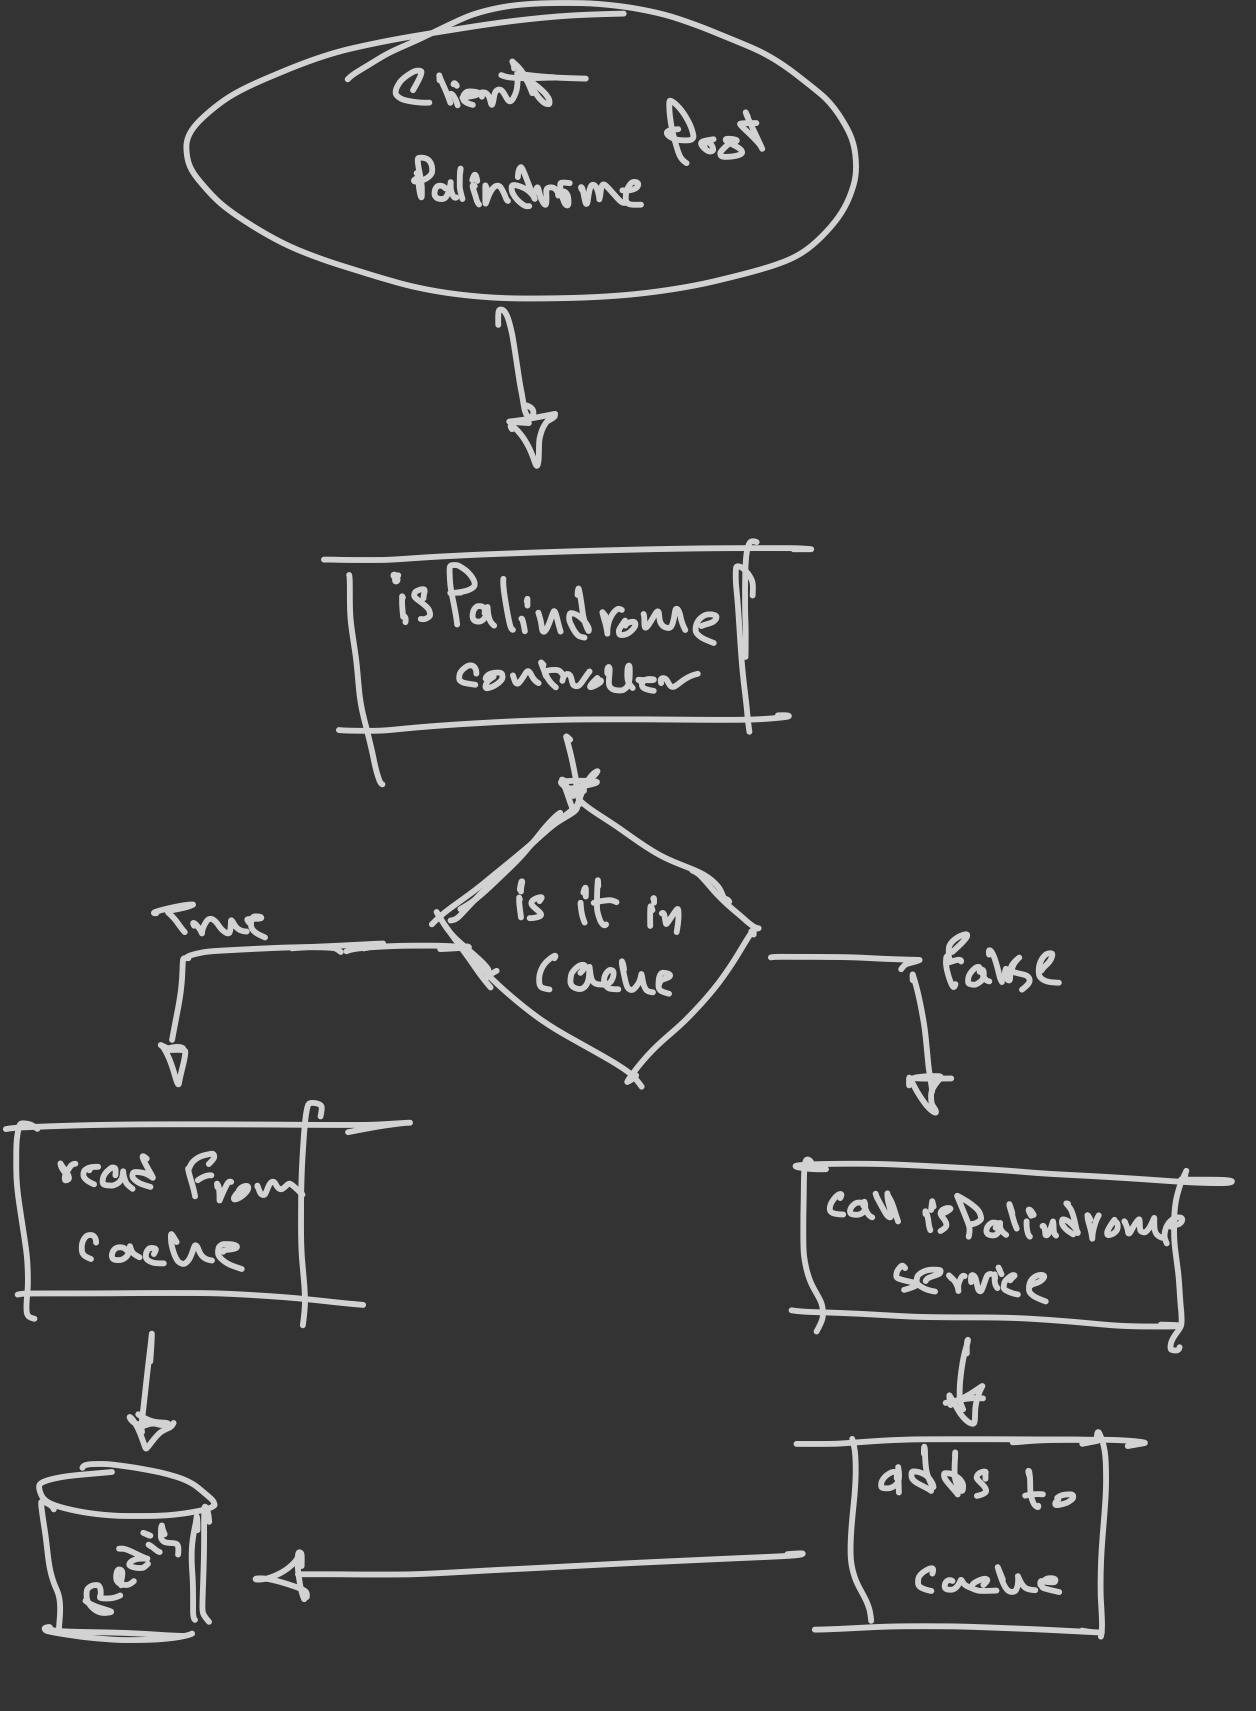 Client
Post
Palindrome
isPalindrome
controller
is it in
cache
True
False
read From
cache
call isPalindrome
service
adds to
cache
Redis